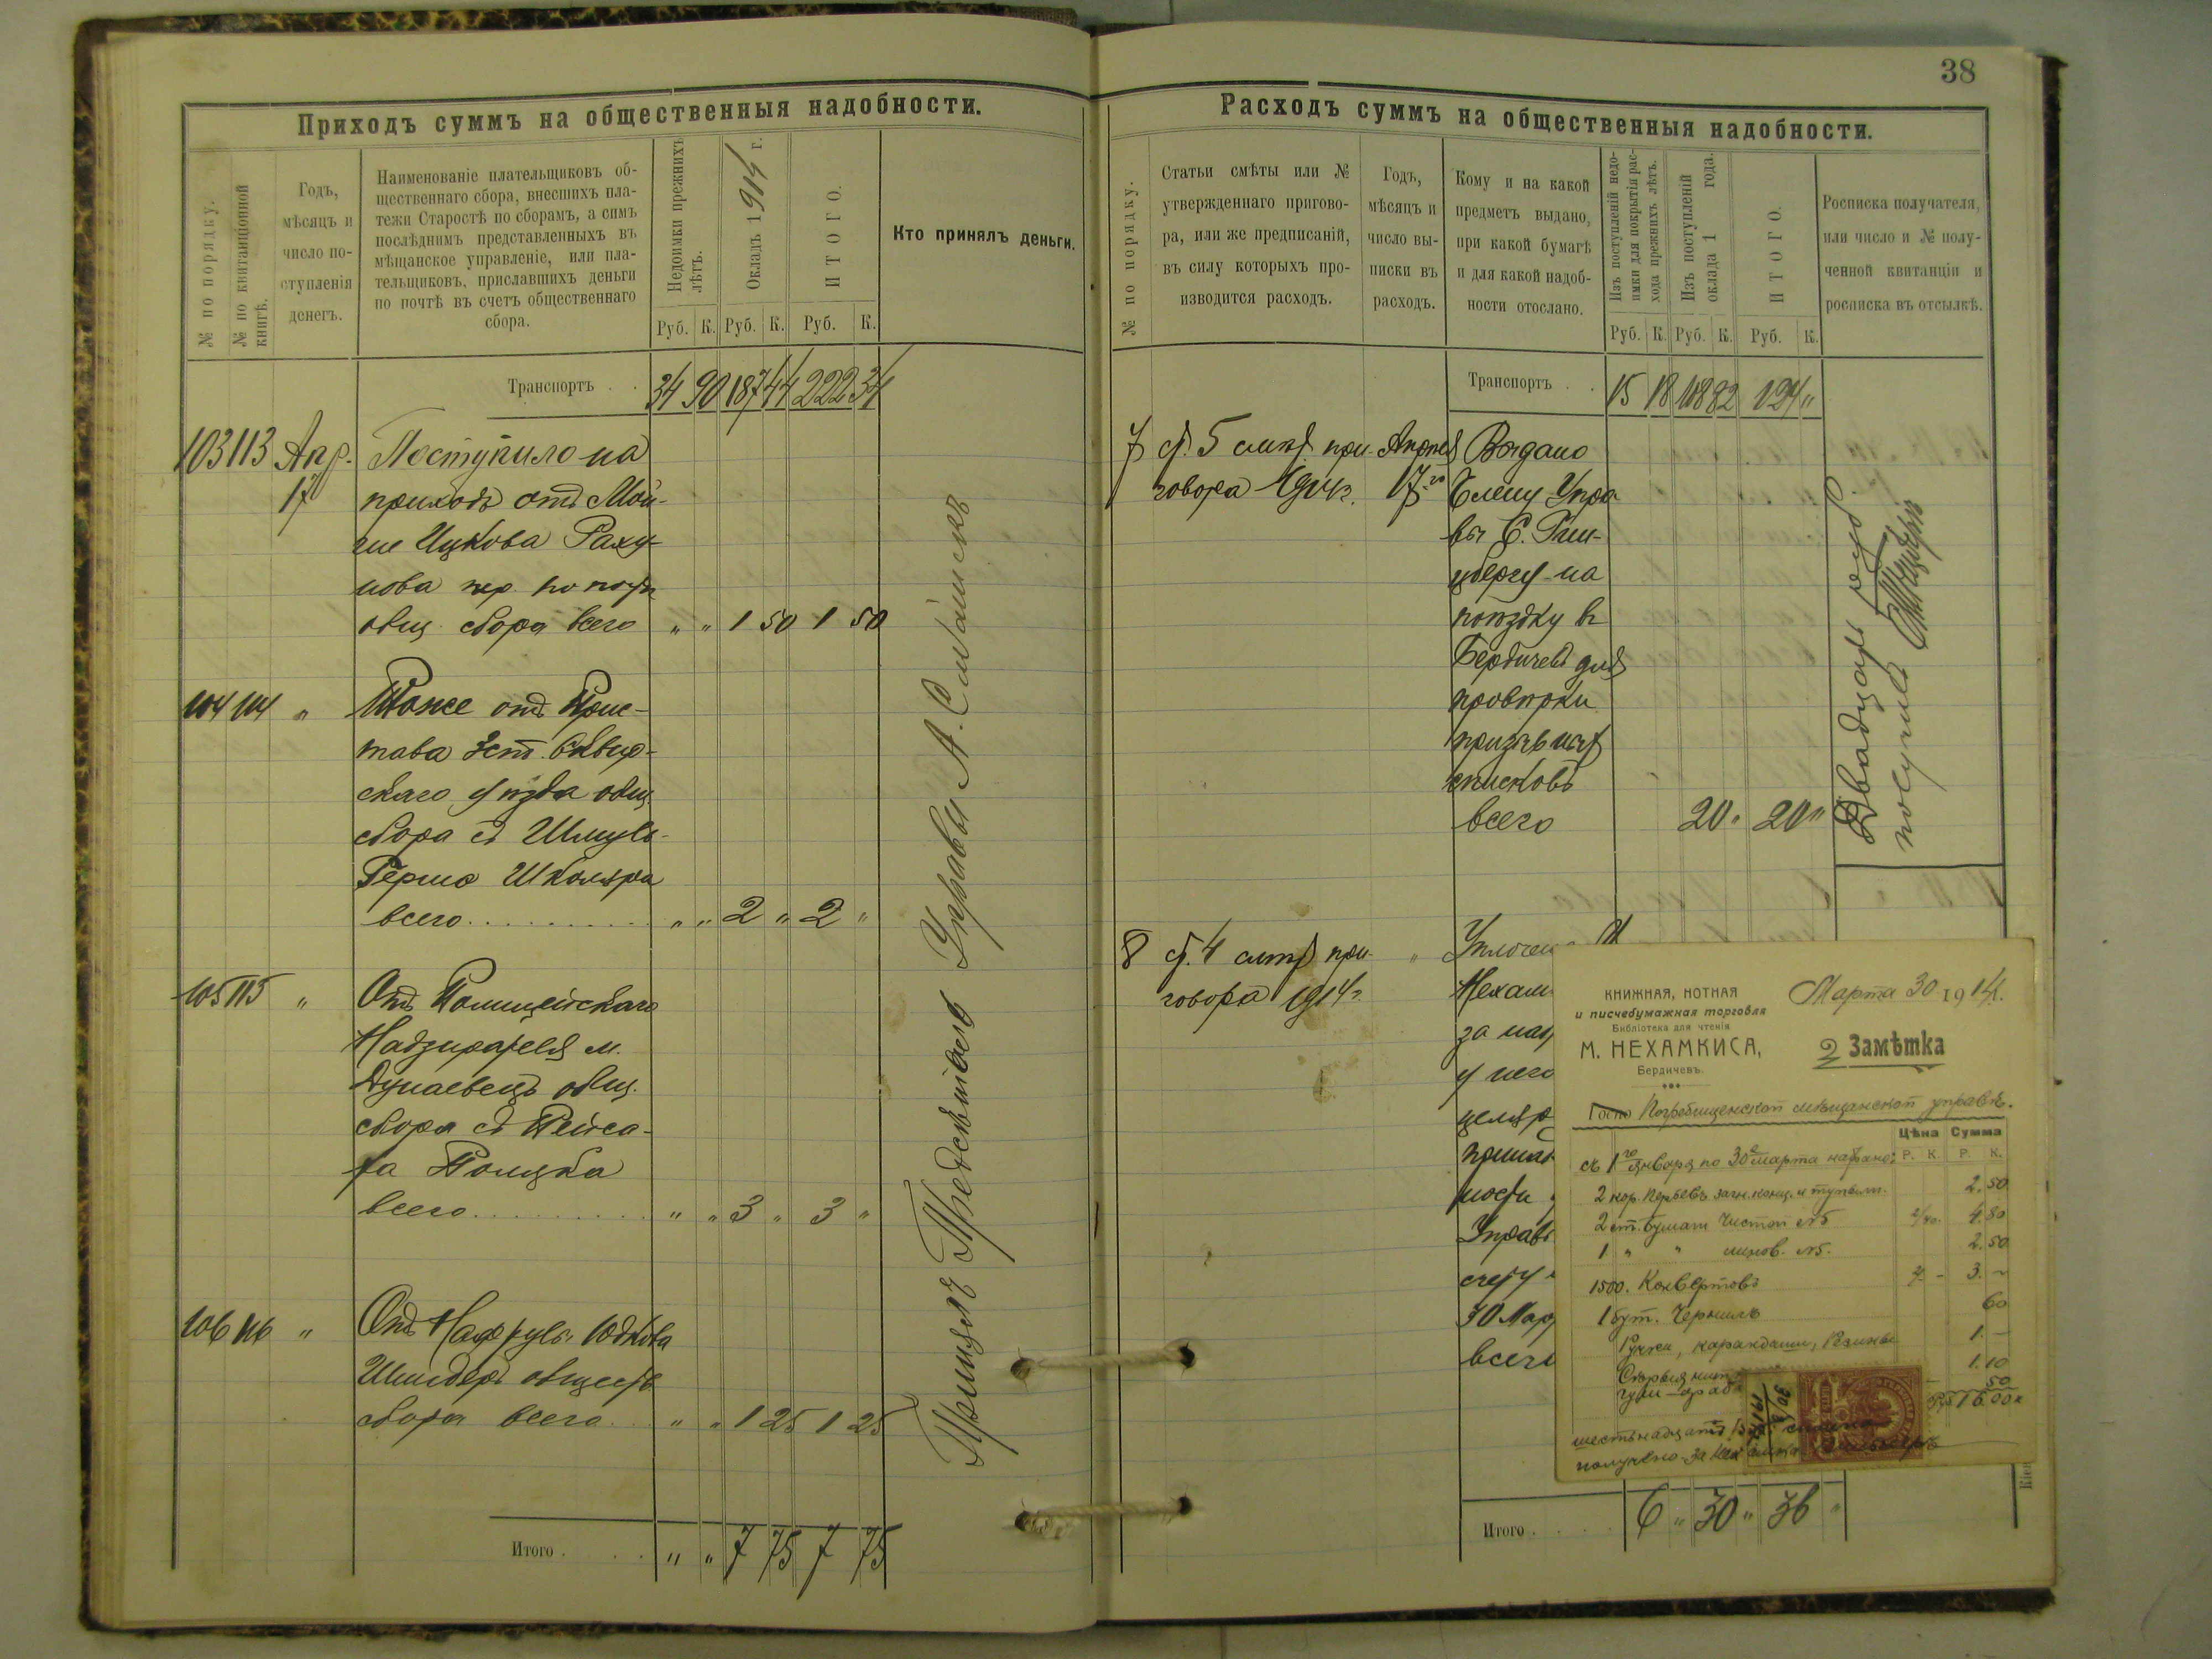 38
Приходъ суммъ на общественныя надобности.
№ по порядку.
№ по квитанціонной книгѣ.
Годъ,
мѣсяцъ и
число по-
ступленія
денегъ.
Наименованіе плательщиковъ об-
щественнаго сбора, внесшихъ пла-
тежи Старостѣ по сборамъ, а симъ
послѣднимъ представленныхъ въ
мѣщанское управленіе, или пла-
тельщиковъ, приславшихъ деньги
по почтѣ въ счетъ общественнаго
сбора.
Недоимки прежнихъ
лѣтъ.
Окладъ 1914 г.
ИТОГО.
Руб. К. Руб. К. Руб. К.
Кто принялъ деньги.
Транспортъ . . 34 90 187 44 222 34
103 113 Апр. Поступило на
17 приходъ отъ Мой-
ше Ицкова Раху-
нова
общ. сбора всего " " 1 50 1 50
104 114 " Тоже отъ Прис-
тава 3 ст. Сквир-
скаго уѣзда общ.
сбора съ Шмуль-
Герша Школяра
всего " " 2 " 2 "
105 115 " Отъ Полицейскаго
Надзирателя м.
Дунаевецъ общ.
сбора съ Пейса-
ха Поляка
всего " " 3 " 3 "
106 116 " Отъ Юдкова
обществ.
сбора всего " " 1 25 1 25
Итого . " " 7 75 7 75
Принялъ Предсѣдатель Управы А.
Расходъ суммъ на общественныя надобности.
№ по порядку.
Статьи смѣты или №
утвержденнаго пригово-
ра, или же предписаній,
въ силу которыхъ про-
изводится расходъ.
Годъ,
мѣсяцъ и
число вы-
писки въ
расходъ.
Кому и на какой
предметъ выдано,
при какой бумагѣ
и для какой надоб-
ности отослано.
Изъ поступленій недо-
имки для покрытія рас-
хода прежнихъ лѣтъ.
Изъ поступленій
оклада 1 года.
ИТОГО.
Руб. К. Руб. К. Руб. К.
Росписка получателя,
или число и № полу-
ченной квитанціи и
росписка въ отсылкѣ.
Транспортъ . . 15 18 108 82 124 "
7 ст. 5 смѣт. при- Апреля Выдано
говора 1914 г. 17го Члену Упра
вы С. Гин-
цбергу на
поѣздку въ
Бердичевъ для
провѣрки
призывныхъ
списковъ
всего 20 " 20 "
Двадцать руб.
получилъ
8 ст. 4 смѣт. при- " Уплочено
говора 1914 г. Нехам
за
у него
целяр
принад
ности
Управ
счету
30 Мар
всего
Итого . . . 6 " 30 " 36 "
КНИЖНАЯ, НОТНАЯ
и писчебумажная торговля
Библіотека для чтенія
М. НЕХАМКИСА,
Бердичевъ.
Марта 30 1914.
Замѣтка
Погребищенской мѣщанской управѣ.
Цѣна Сумма
Р. К. Р. К.
съ 1го января по 30е марта набрано:
2 кор. перьевъ 2.50
2 ст. бумаги чистой №5 2/40 4.80
1 " " линов. №5. 2.50
1500. Конвертовъ 2 - 3. -
1 бут. Чернилъ 60
Ручки, карандаши, Резинки 1.-
1.10
50
Руб 16.00 к
шестьнадцать
получено за